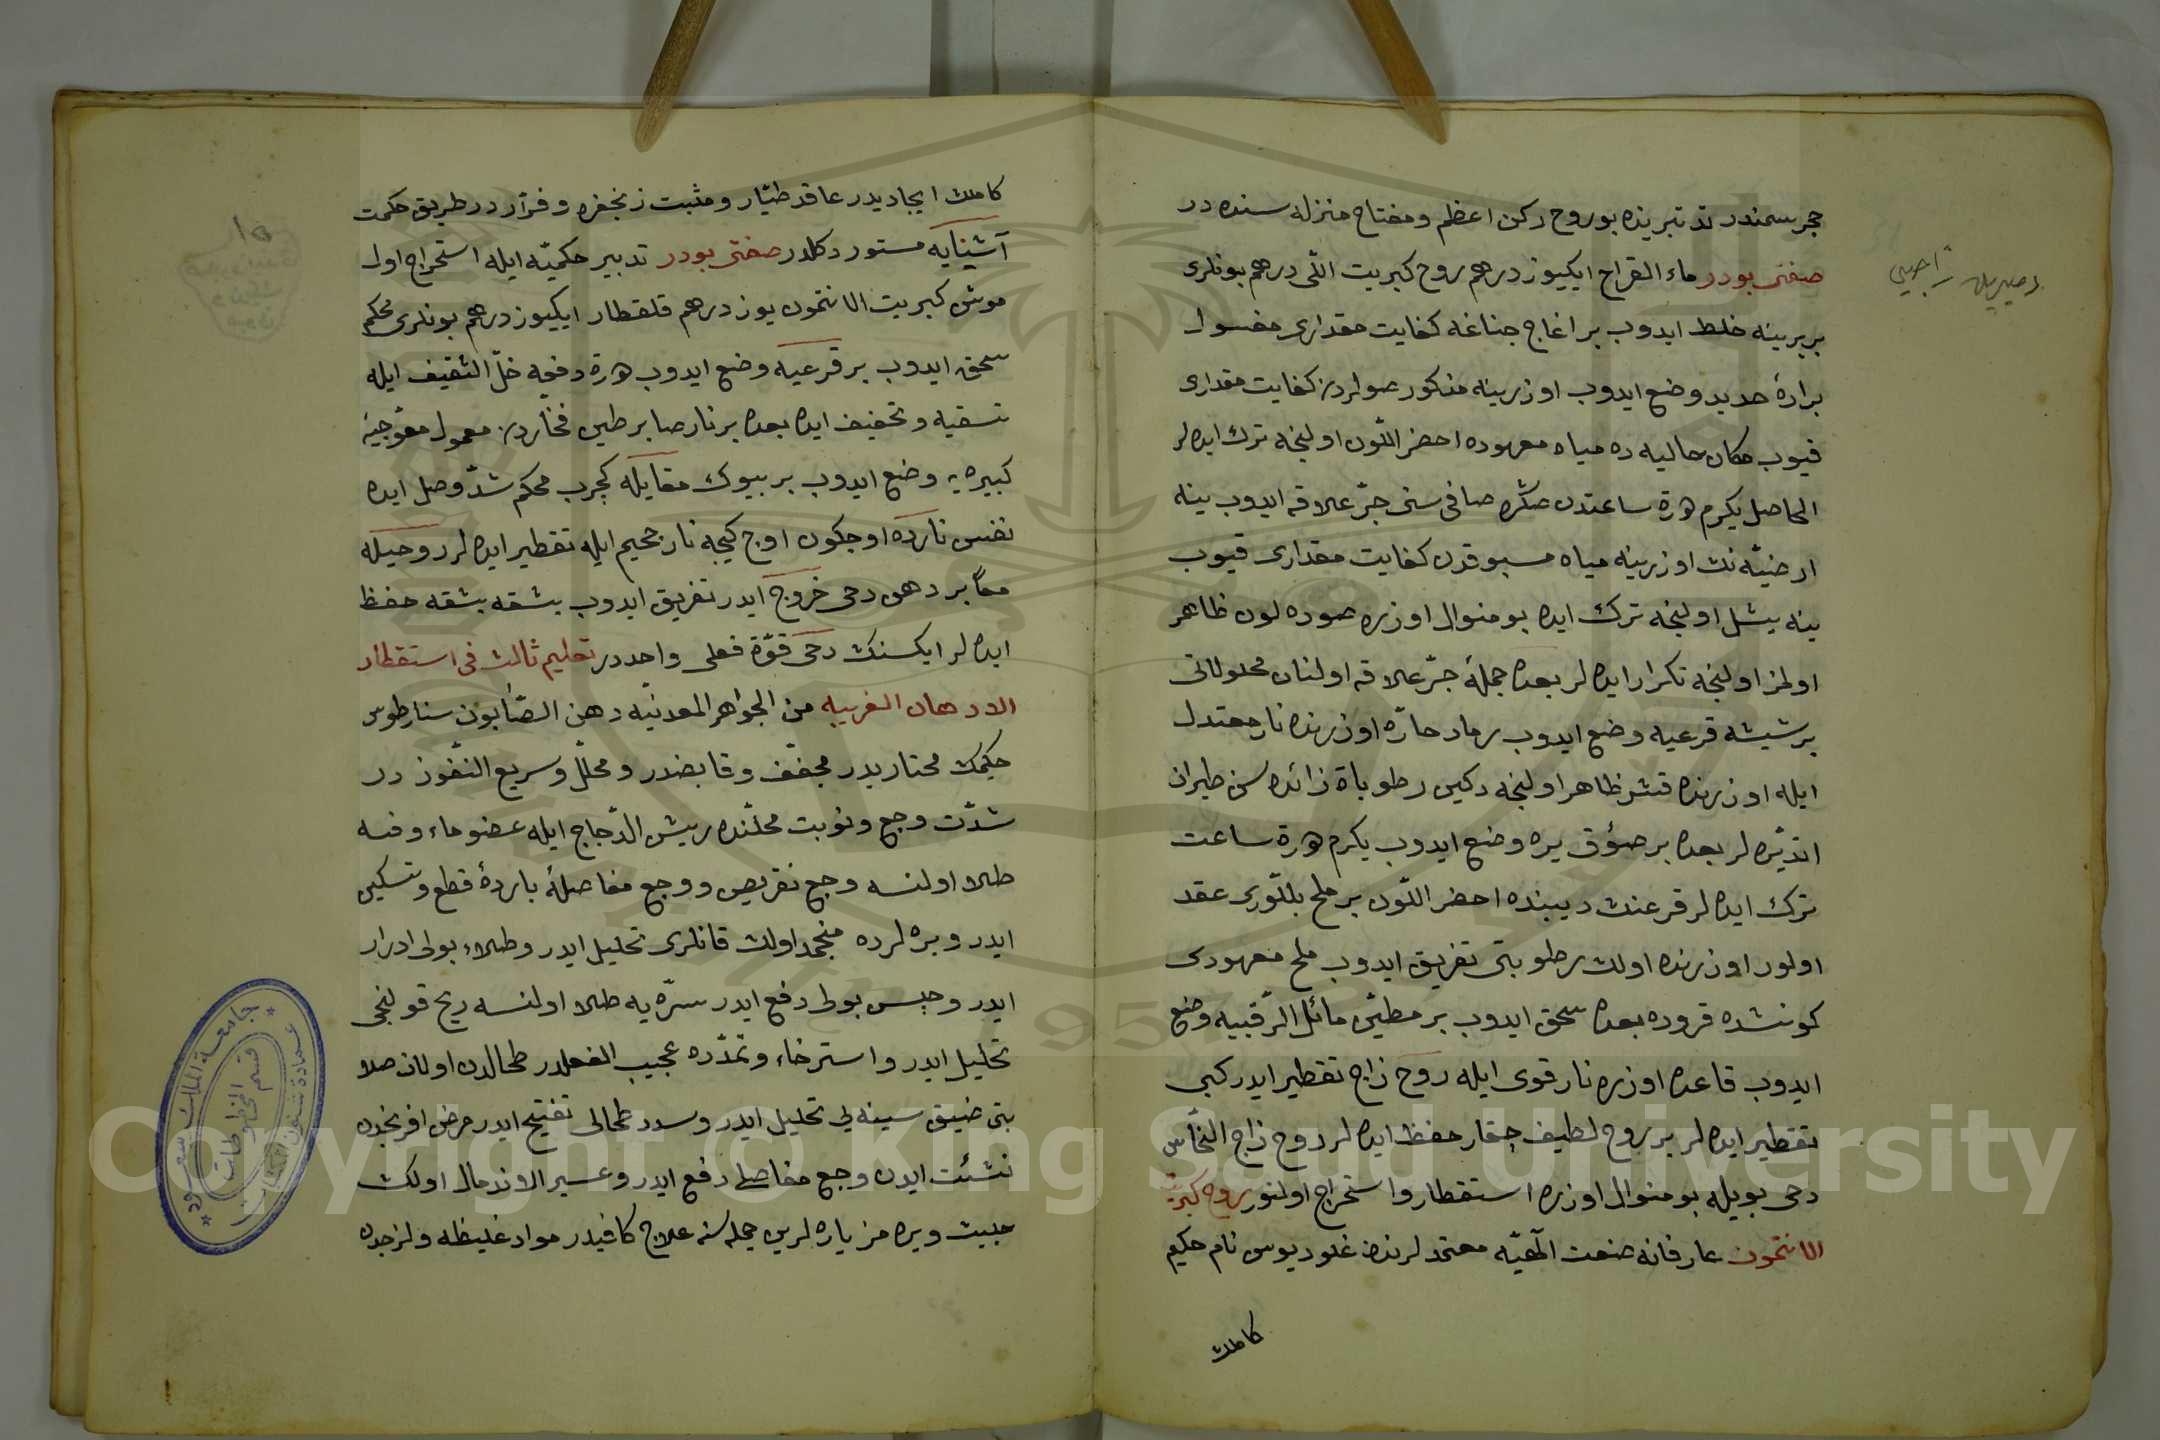 حجر سمندر تدبیرنده بو روح رکن اعظم و مفتاح منزله سنده در
صفتی بودر ماء القراح ایکیوز درهم روح کبریت اللی درهم بونلری
بربرینه خلط ایدوب بر اغاج جناغه کفایت مقداری مغسول
برادهٔ حدید وضع ایدوب اوزرینه مذکور صولردن کفایت مقداری
قیوب مکان حالیه ده میاه معهوده احضر اللّون اولنجه ترك ایده لر
الحاصل یکرم درت ساعتدن صکره صافی سنی جرّ علاقه ایدوب ینه
ارضیّه نك اوزرینه میاه مسبوقدن کفایت مقداری قیوب
ینه یشل اولنجه ترك ایده بو منوال اوزره صوده لون ظاهر
اولمز اولنجه تکرار ایده لر بعده جملهٔ جرّ علاقه اولنان محلولاتی
بر شیشه قرعیه وضع ایدوب رماد حارّه اوزرنده نار معتدل
ایله اوزرنده قشر ظاهر اولنجه دکین رطوباة زائده سن طیران
اتدیره لر بعده بر صؤق یره وضع ایدوب یکرم درت ساعت
ترك ایده لر قرعنك دیبنده احضر اللّون بر ملح بللّوری عقد
اولور اوزرنده اولان رطوبتی تفریق ایدوب ملح معهودی
کونشده قروده بعده سحق ایدوب بر مطیّن مائل الرّقبیه وضع
ایدوب قاعده اوزره نار قوی ایله روح زاج تقطیر ایدر کبی
تقطیر ایده لر بر روح لطیف چقار حفظ ایده لر روح زاج النحّاس
دخی بویله بو منوال اوزره استقطار و استخراج اولنور روح کبریت
الانتمون عارفانه صنعت الٓهیّه معتمد لرندن غلودیوس نام حکیم
کاملك
کاملك ایجادیدر عاقد طیّار و مثبت زنجفره و فرّار در طریق حکمت
آشنایه مستور دکلدر صفتی بودر تدبیر حکمیّه ایله استخراج اولـ
موش کبریت الانتمون یوز درهم قلقطار ایکیوز درهم بونلری محکم
سحق ایدوب بر قرعیه وضع ایدوب درت دفعه خلّ الثقیف ایله
تسقیه و تخفیف ایده بعده بر نار صابر طین فخاردن معمول معوّجیه
کبیره یه وضع ایدوب بر بیوك مقابله کچرب محکم شدّ وصل ایده
نفس نارده اوچکون اوچ کیجه نار جحیم ایله تقطیر ایده لر روحیله
معاً بر دهن دخی خروج ایدر تفریق ایدوب بشقه بشقه حفظ
ایده لر ایکسنك دخی قوّة فعلی واحددر تعلیم ثالث فی استقطار
الادهان الغریبه من الجواهر المعدنیّه دهن الصّابون سنارطوس
حکیمك مختاریدر مجفّف و قابضدر و محلّل و سریع النّفوذ در
شدّت وجع و نوبت محلّنده ریش الدّجاج ایله عضو ماءوفه
طلا اولنسه وجع نقریص و وجع مفاصلهٔ باردهٔ قطع و تسکین
ایدر و بره لرده منجمد اولان قانلری تحلیل ایدر و طلاء بولی ادرار
ایدر و حبس بولی دفع ایدر سرّه یه طلا اولنسه ریح قولنجی
تحلیل ایدر و استرخاء و تمدّده عجیب الفعلدر طحالدن اولان صلا
بتی ضیق سینه یی تحلیل ایدر و سدد طحالی تفتیح ایدر مرض افرنجدن
نشئت ایدن وجع مفاصلی دفع ایدر و عسیر الاندمال اولان
خبیث و یره مز یاره لرین جمله سنه علاج کافیدر مواد غلیظه و لزجده
جامعة الملك سعود
عمادة شئون المكتبات
قسم المخطوطات